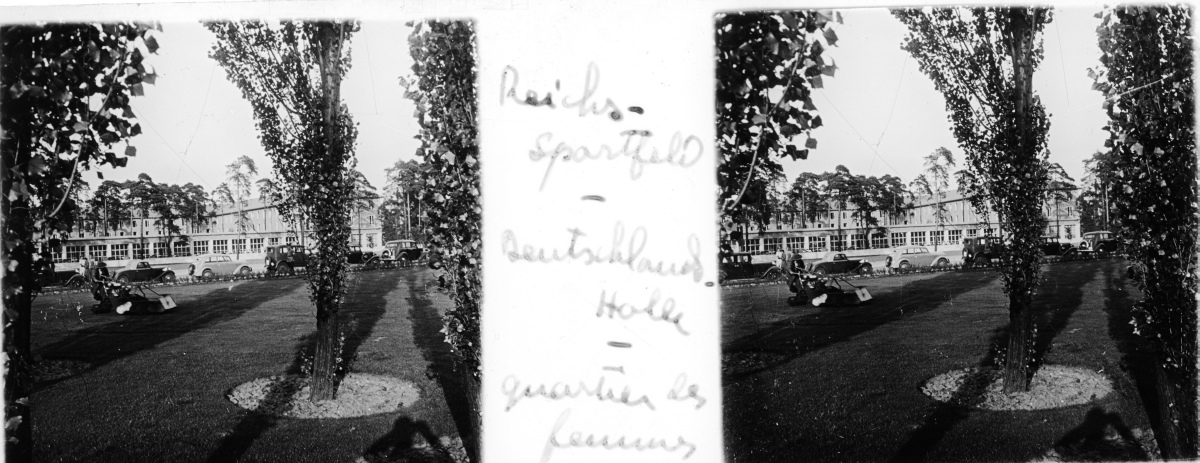 Reichs-
Sportfeld
-
Deutschlands.
Halle
-
quartier des
femmes